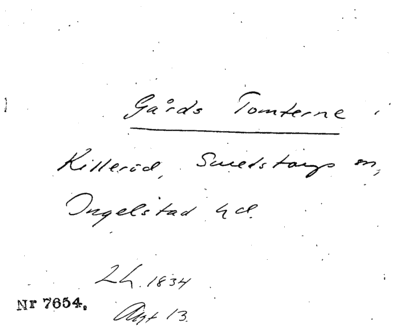 Gårds Tomterne i
Killeröd, Smedstorps sn,
Ingelstad hd.
2 h. 1834
Nr 7654.
Aut 13.